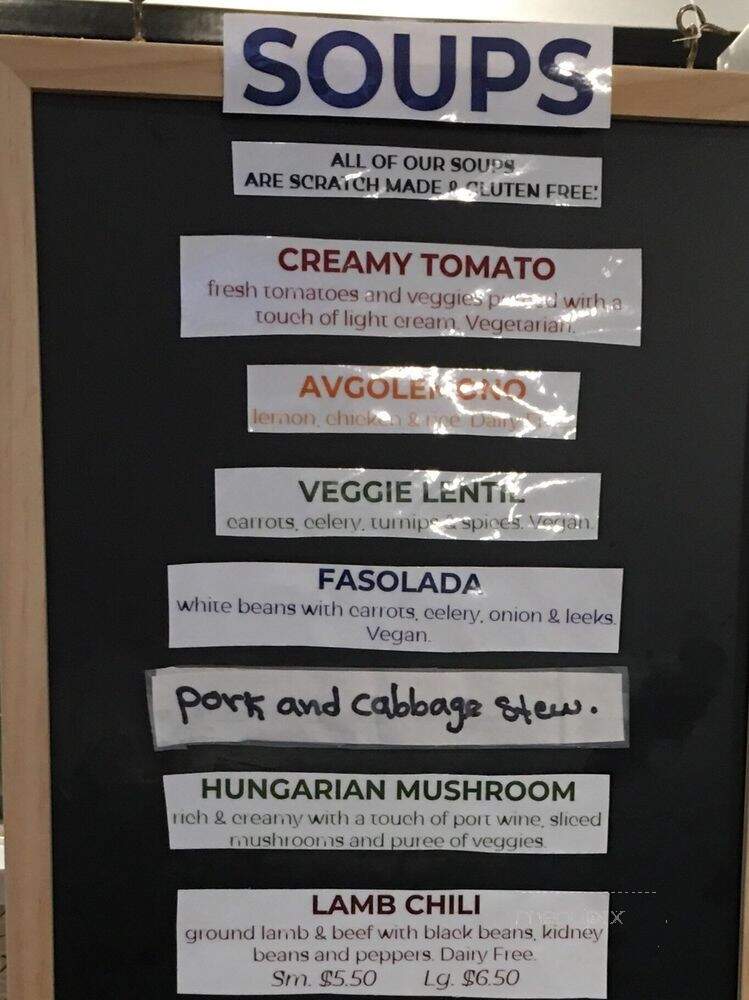 SOUPS
ALL OF OUR SOUPS
ARE SCRATCH MADE & GLUTEN FREE!
CREAMY TOMATO
fresh tomatoes and veggies with a
touch of light cream. Vegetarian.
AVGOLEMONO
lemon, chicken & rice. Dairy
VEGGIE LENTIL
carrots, celery, turnips & spices. Vegan.
FASOLADA
white beans with carrots, celery, onion & leeks.
Vegan.
pork and cabbage stew.
HUNGARIAN MUSHROOM
rich & creamy with a touch of port wine, sliced
mushrooms and puree of veggies.
LAMB CHILI
ground lamb & beef with black beans, kidney
beans and peppers. Dairy Free.
Sm. $5.50 Lg. $6.50